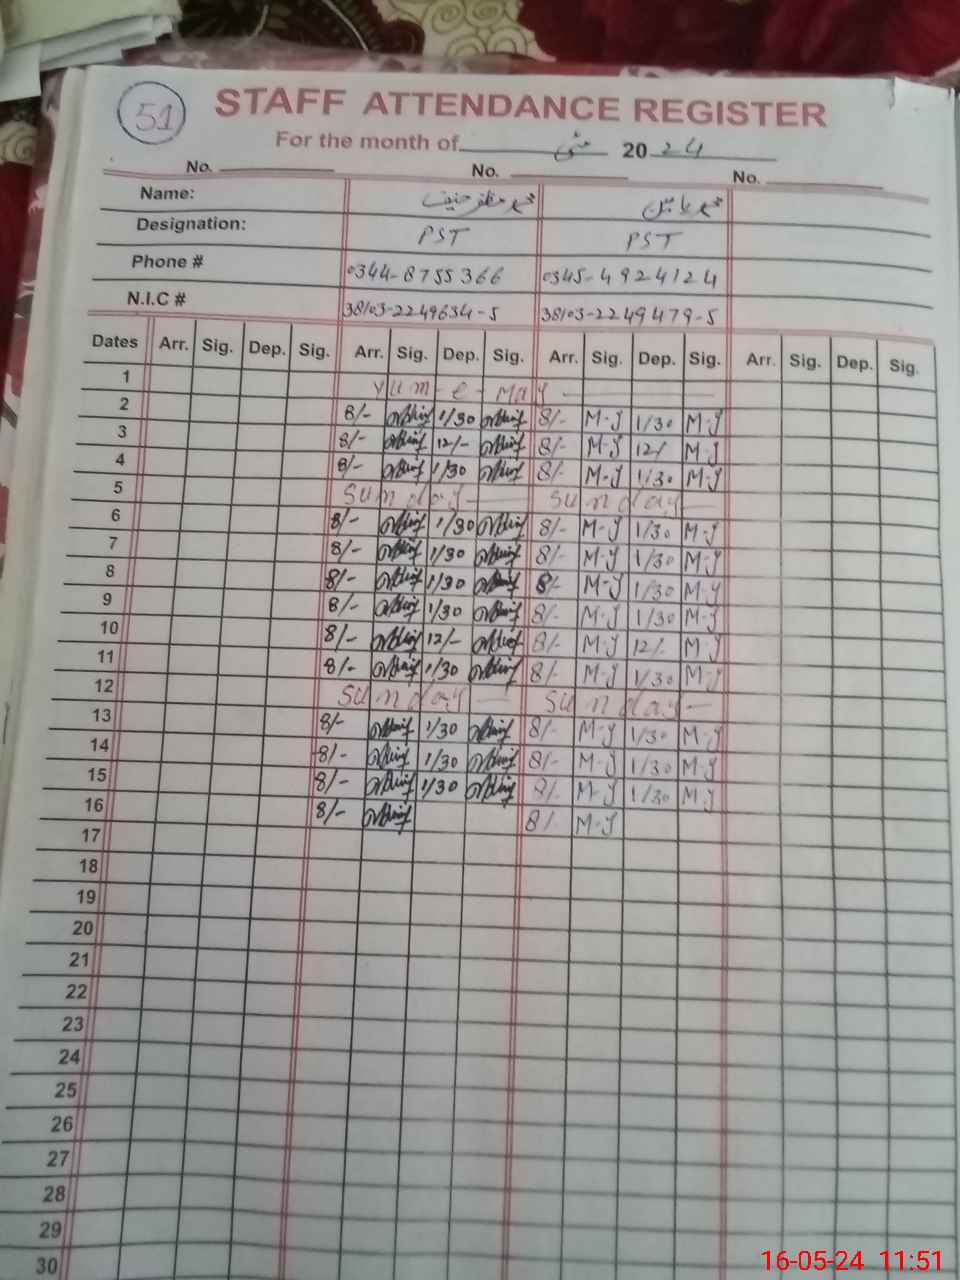 51
STAFF ATTENDANCE REGISTER
For the month of مئی 2024
No. No. No.
Name: محمد حنیف محمد
Designation: PST PST
Phone # 0344-8755366 0345-4924124
N.I.C # 38103-2249634-5 38103-2249479-5
Dates Arr. Sig. Dep. Sig. Arr. Sig. Dep. Sig. Arr. Sig. Dep. Sig. Arr. Sig. Dep. Sig.
1 Yum-e-May
2 8/- 1/30 8/- M-J 1/30 M-J
3 8/- 12/- 8/- M-J 12/- M-J
4 8/- 1/30 8/- M-J 1/30 M-J
5 Sunday Sunday
6 8/- 1/30 8/- M-J 1/30 M-J
7 8/- 1/30 8/- M-J 1/30 M-J
8 8/- 1/30 8/- M-J 1/30 M-J
9 8/- 1/30 8/- M-J 1/30 M-J
10 8/- 12/- 8/- M-J 12/- M-J
11 8/- 1/30 8/- M-J 1/30 M-J
12 Sunday Sunday
13 8/- 1/30 8/- M-J 1/30 M-J
14 8/- 1/30 8/- M-J 1/30 M-J
15 8/- 1/30 8/- M-J 1/30 M-J
16 8/- 8/- M-J
17
18
19
20
21
22
23
24
25
26
27
28
29
30
16-05-24 11:51